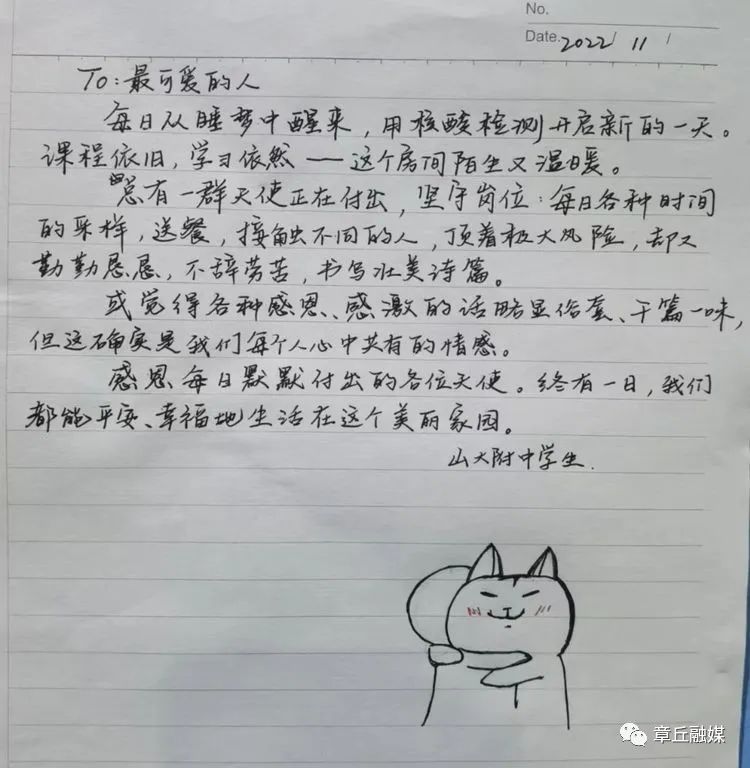 No.
Date. 2022 / 11 /
To：最可爱的人
每日从睡梦中醒来，用核酸检测开启新的一天。
课程依旧，学习依然——这个房间陌生又温暖。
总有一群天使正在付出，坚守岗位：每日各种时间
的采样，送餐，接触不同的人，顶着极大风险，却又
勤勤恳恳，不辞劳苦，书写壮美诗篇。
或觉得各种感恩、感激的话略显俗套、千篇一味，
但这确实是我们每个人心中共有的情感。
感恩每日默默付出的各位天使。终有一日，我们
都能平安、幸福地生活在这个美丽家园。
山大附中学生.
章丘融媒